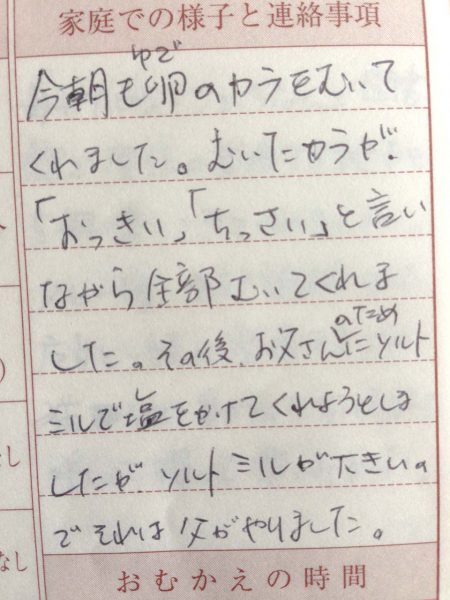 家庭での様子と連絡事項
今朝もゆで卵のカラをむいて
くれました。むいたカラが、
「おっきい」「ちっさい」と言い
ながら全部むいてくれま
した。その後、お父さんのためにソルト
ミルで塩をかけてくれようとしま
したが、ソルトミルが大きいの
でそれは父がやりました。
なし
おむかえの時間